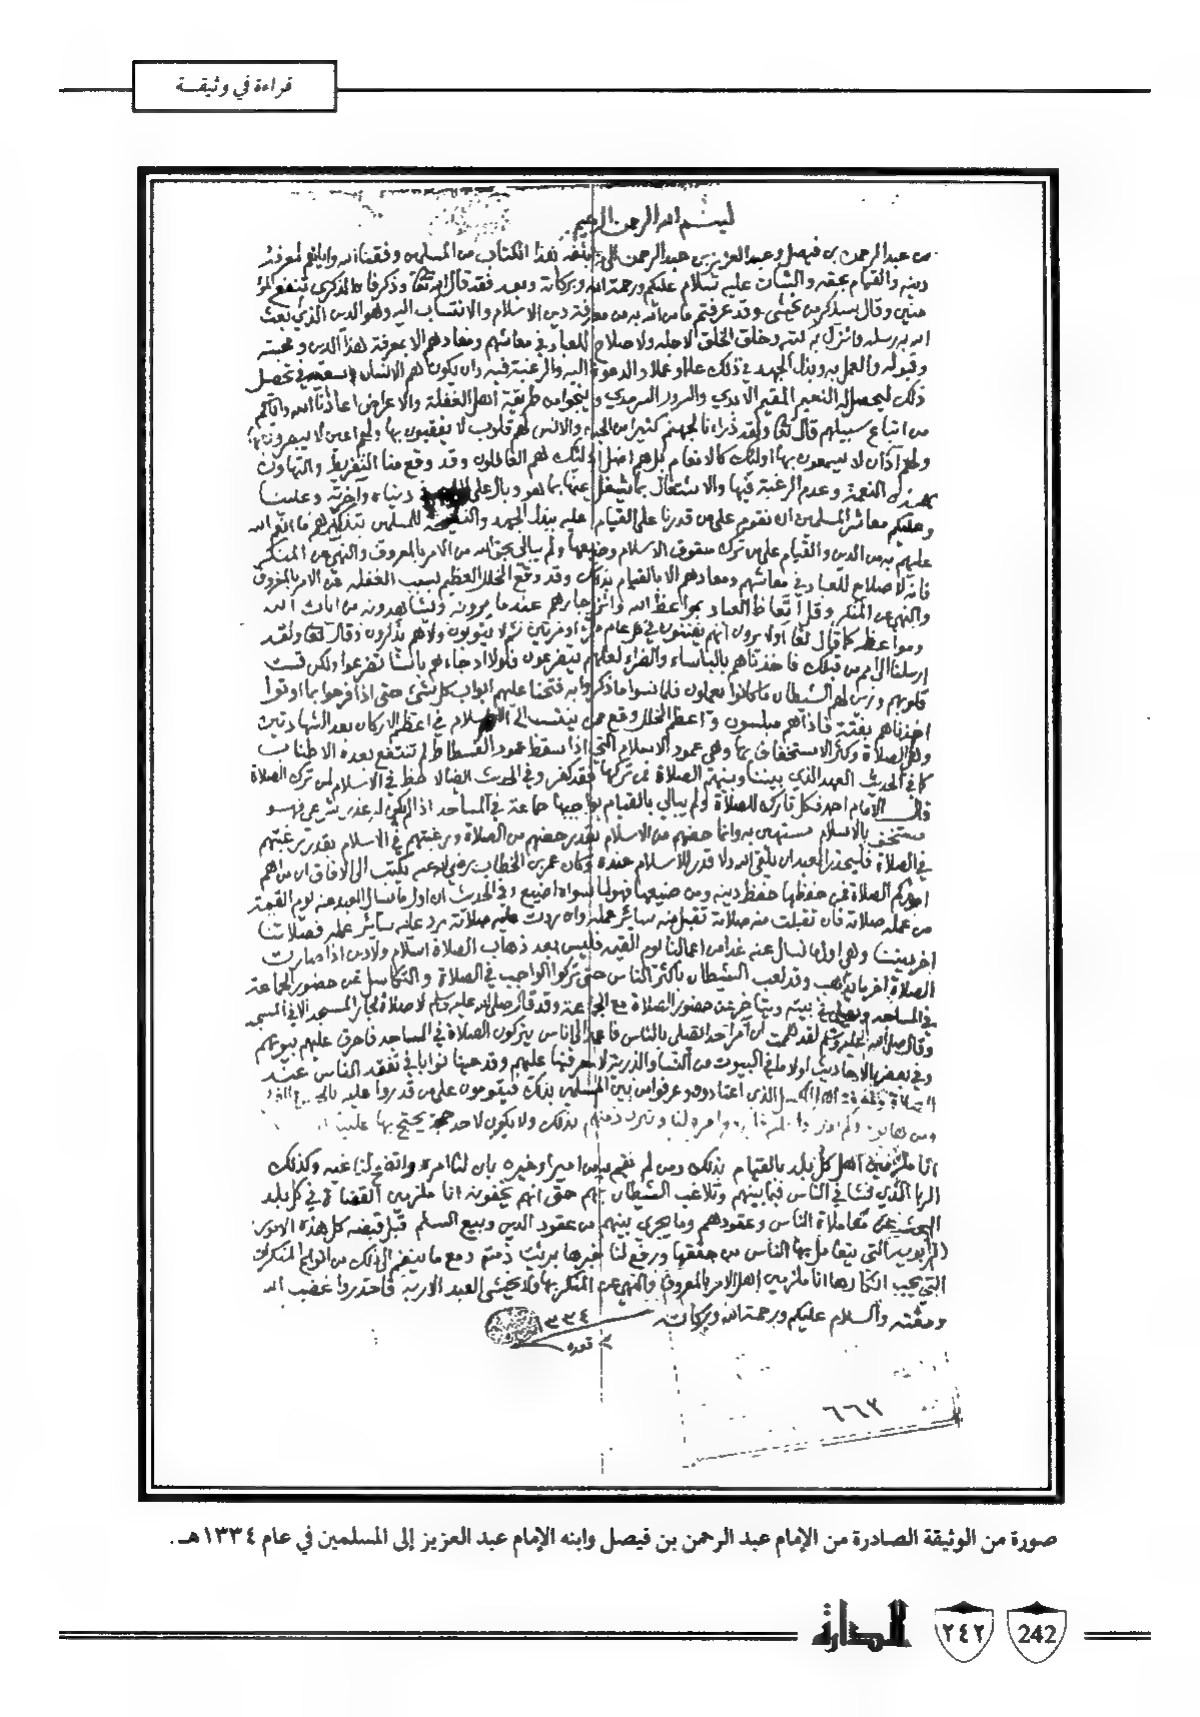 قراءة في وثيقـــة
بسم الله الرحمن الرحيم
من عبد الرحمن بن فيصل وعبد العزيز بن عبد الرحمن الى من يبلغه هذا الكتاب من المسلمين وفقنا الله واياهم لمعرفة
دينه والقيام بحقه والثبات عليه سلام عليكم ورحمة الله وبركاته وبعد فقد قال الله تعالى وذكر فان الذكرى تنفع المؤ
منين وقال سيذكر من يخشى وقد عرفتم ما من الله به من معرفة دين الاسلام والانتساب اليه وهو الدين الذي بعث
الله به رسله وانزل به كتبه وخلق الخلق لاجله ولا صلاح للعباد في معاشهم ومعادهم الا بمعرفة هذا الدين ومحبته
وقبوله والعمل به وبذل الجهد في ذلك علما وعملا والدعوة اليه والرغبة فيه وان يكون هم الانسان في تحصيل
ذلك ليحصل له النعيم المقيم الابدي والسرور السرمدي وينجو من طريقة اهل الغفلة والاعراض اعاذنا الله واياكم
من اتباع سبيلهم قال تعالى ولقد ذرانا لجهنم كثيرا من الجن والانس لهم قلوب لا يفقهون بها ولهم اعين لا يبصرون بها
ولهم آذان لا يسمعون بها اولئك كالانعام بل هم اضل اولئك هم الغافلون وقد وقع منا التفريط والتهاون
بهذه النعمة وعدم الرغبة فيها والاشتغال بما يشغل عنها مما هو وبال على في دنياه وآخرته وعلينا
وعليكم معاشر المسلمين ان نقوم على من قدرنا على القيام عليه ببذل الجهد للمسلمين بتذكيرهم ما انعم الله
عليهم به من الدين والقيام على من ترك حقوق الاسلام وضيعها ولم يبالي بحق الله من الامر بالمعروف والنهي عن المنكر
فانه لا صلاح للعباد في معاشهم ومعادهم الا بالقيام بذلك وقد وقع الخلل العظيم بسبب الغفلة عن الامر بالمعروف
والنهي عن المنكر وقل اتعاظ العباد بمواعظ الله وانزجارهم عند ما يرونه ويشاهدونه من آيات الله
ومواعظه كما قال تعالى اولا يرون انهم يفتنون في كل عام مرة او مرتين ثم لا يتوبون ولا هم يذكرون وقال تعالى ولقد
ارسلنا الى امم من قبلك فاخذناهم بالباساء والضراء لعلهم يتضرعون فلولا اذ جاءهم باسنا تضرعوا ولكن قست
قلوبهم وزين لهم الشيطان ما كانوا يعملون فلما نسوا ما ذكروا به فتحنا عليهم ابواب كل شيء حتى اذا فرحوا بما اوتوا
اخذناهم بغتة فاذا هم مبلسون واعظم الخلل وقع ممن ينتسب الى الاسلام في اعظم الاركان بعد الشهادتين
وهي الصلاة وكثر الاستخفاف بها وهي عمود الاسلام التي اذا سقط عمود الفسطاط لم تنتفع بعده الاطناب
كما في الحديث العهد الذي بيننا وبينهم الصلاة فمن تركها فقد كفر وفي الحديث ايضا لا حظ في الاسلام لمن ترك الصلاة
قال الامام احمد فكل تارك للصلاة ولم يبالي بالقيام بواجبها جماعة في المساجد اذا لم يكن له عذر شرعي فهو
مستخف بالاسلام مستهين به وانما حضهم من الاسلام بقدر حضهم من الصلاة ورغبتهم في الاسلام بقدر رغبتهم
في الصلاة فليحذر العبد ان يلقى الله ولا قدر للاسلام عنده وكان عمر بن الخطاب رضي الله عنه يكتب الى الآفاق ان من اهم
اموركم الصلاة فمن حفظها حفظ دينه ومن ضيعها فهو لما سواها اضيع وفي الحديث ان اول ما يسال العبد عنه يوم القيمة
من عمله صلاته فان تقبلت منه صلاته تقبل منه سائر عمله وان ردت عليه صلاته رد عليه سائر عمله فصلاتنا
آخر ديننا وهي اول ما نسال عنه غدا من اعمالنا يوم القيمة فليس بعد ذهاب الصلاة اسلام ولا دين اذا صارت
الصلاة آخر ما يذهب وقد لعب الشيطان باكثر الناس حتى تركوا الواجب في الصلاة والتكاسل عن حضور الجماعة
في المساجد ويصلي في بيته ويتاخر عن حضور الصلاة مع الجماعة وقد قال صلى الله عليه وسلم لا صلاة لجار المسجد الا في المسجد
وقال صلى الله عليه وسلم لقد هممت ان آمر احد يصلي بالناس فاعمد الى اناس يتركون الصلاة في المساجد فاحرق عليهم بيوتهم
وفي بعض الاحاديث لولا ما في البيوت من النساء والذرية لاحرقتها عليهم وقد جعلنا نوابا في تفقد الناس عند
الصلاة ومعرفة اهل الكسل الذي اعتادوه وعرفوا من بين المسلمين بذلك فيقومون على من قدروا عليه
ومن وتبرء ذمتهم بذلك ولا يكون لاحد حجة يحتج بها علينا
انا ملزمين اهل كل بلد بالقيام بذلك ومن لم نفهم من امير او غيره بان لنا امره واتضح لنا غيه وكذلك
الربا الذي فشا في الناس فيما بينهم وتلاعب الشيطان بهم حتى انهم يخفونه انا ملزمين القضاة في كل بلد
البحث عن معاملات الناس وعقودهم وما يجري بينهم من عقود الدين وبيع السلم قبل قبضه كل هذه الامور
الربوية التي يتعامل بها الناس من حققها ورفع لنا خبرها برئت ذمته ومع ما ينضم الى ذلك من انواع المنكرات
التي يجب انكارها انا ملزمين اهل الامر بالمعروف والنهي عن المنكر بها فلا يخشى العبد الا ربه فاحذروا غضب الله
ومقته والسلام عليكم ورحمة الله وبركاته
٣٣٤
قعده
٦٦٢
صورة من الوثيقة الصادرة من الإمام عبد الرحمن بن فيصل وابنه الإمام عبد العزيز إلى المسلمين في عام ١٣٣٤هـ.
الدارة ٢٤٢ 242